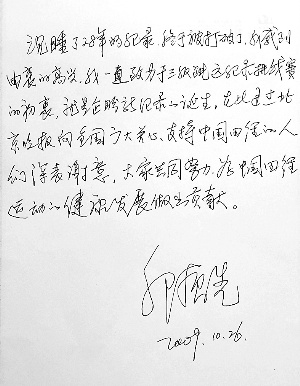 沉睡了28年的纪录,终于被打破了,我感到
由衷的高兴。我一直致力于三级跳远纪录挑战赛
的初衷,就是在盼望纪录的诞生,在此通过北
京晚报向全国广大关心、支持中国田径的人
们深表谢意,大家共同努力为中国田径
运动的健康发展做出贡献。
2009.10.26